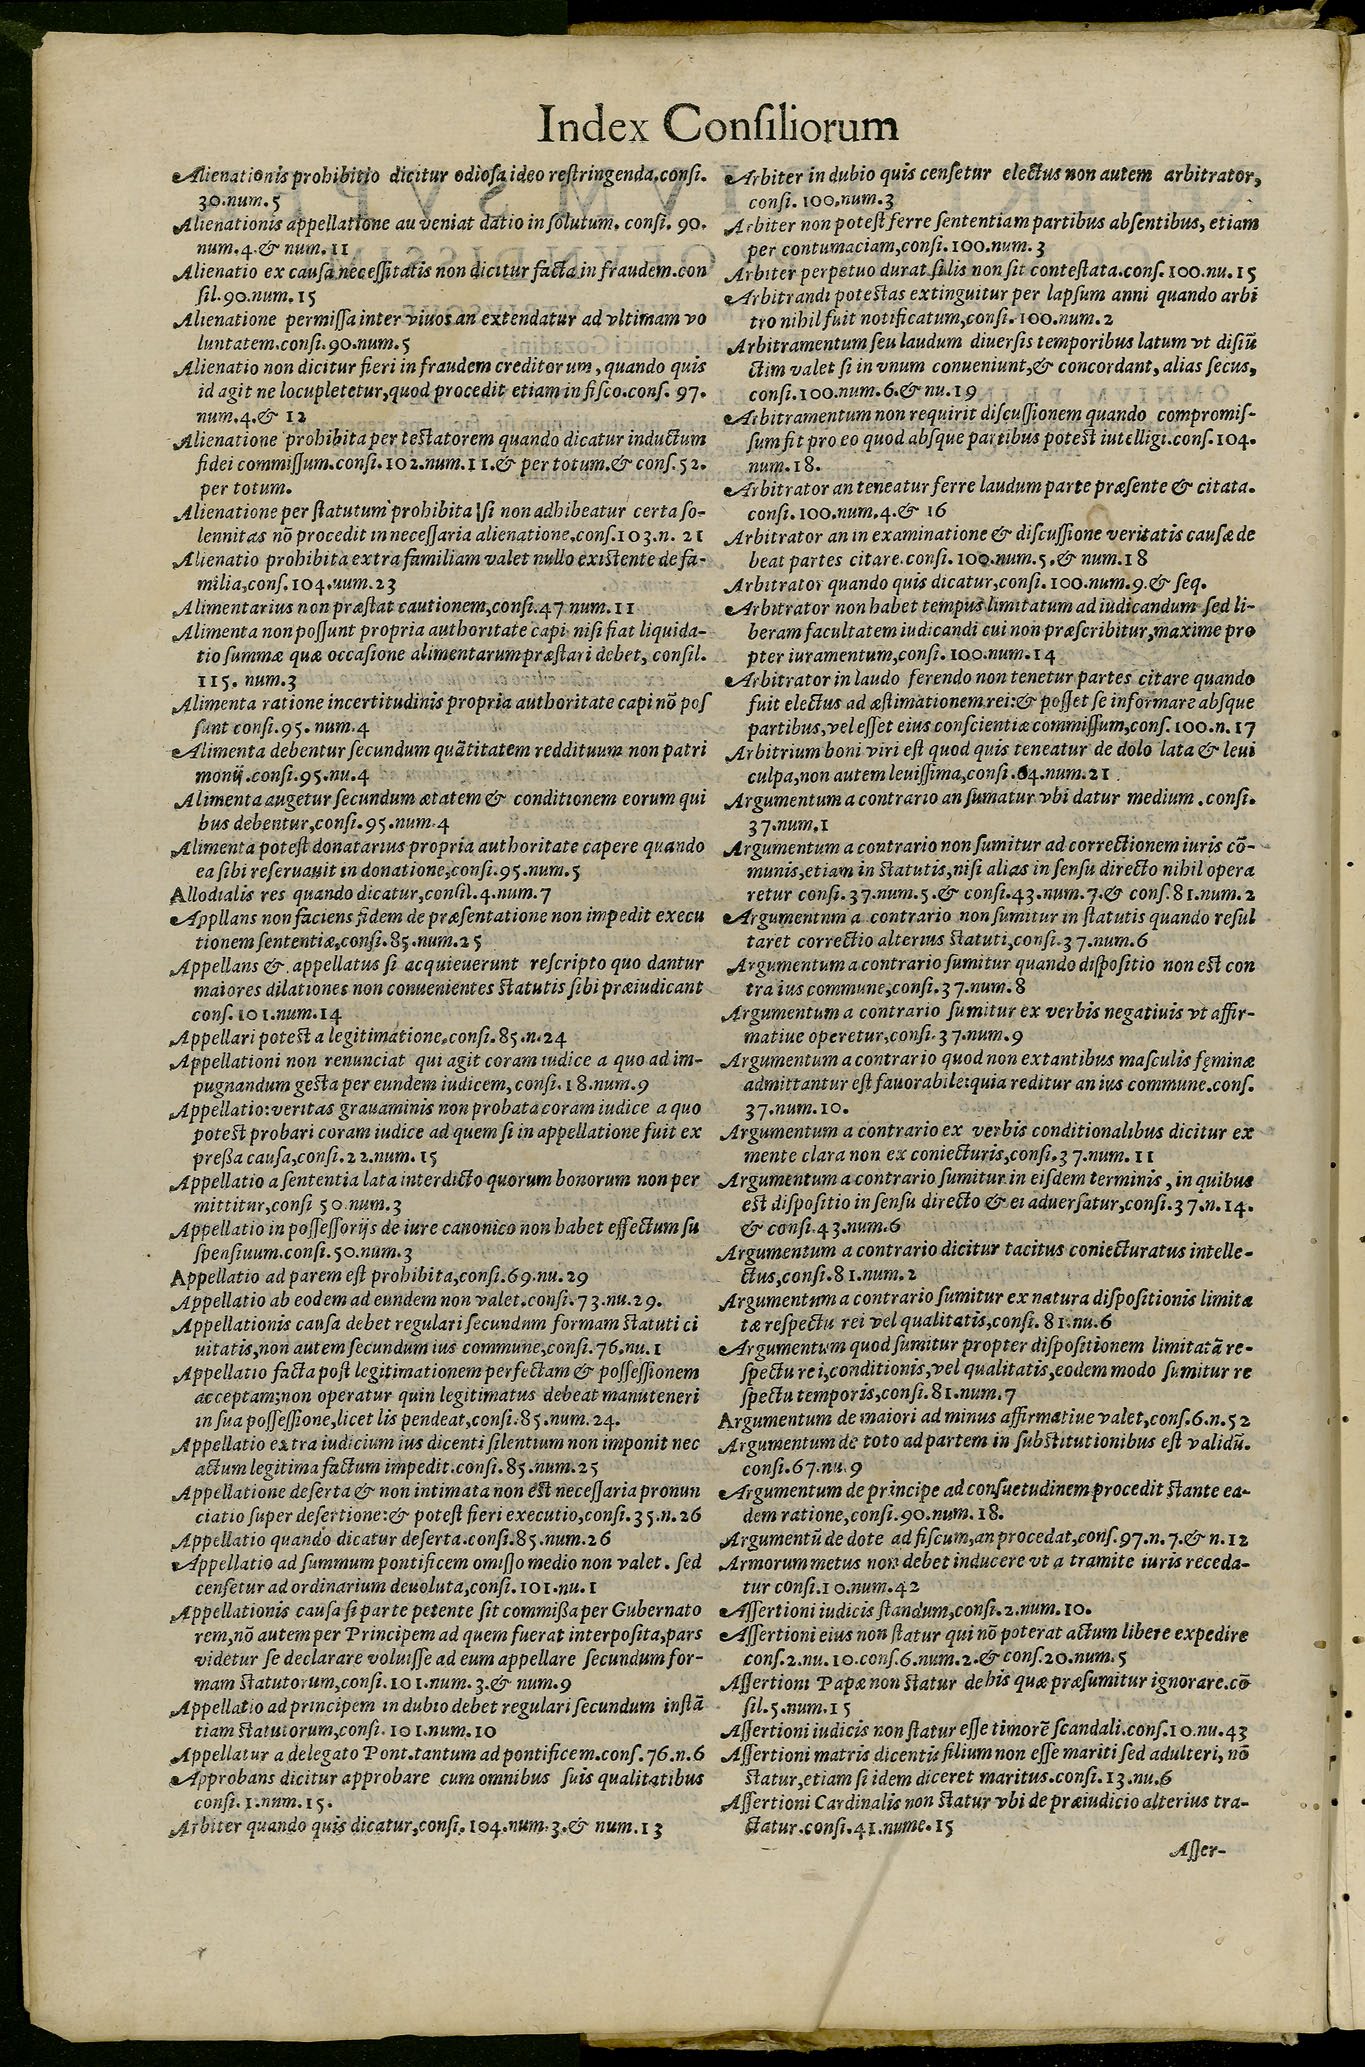 Index Conſiliorum
Alienationis prohibitio dicitur odioſa ideo reſtringenda.conſi.
30.num.5
Alienationis appellatione au veniat datio in ſolutum. conſi. 90.
num.4.& num.11
Alienatio ex cauſa neceſſitatis non dicitur facta in fraudem.con
ſil.90.num.15
Alienatione permiſſa inter viuos an extendatur ad vltimam vo
luntatem.conſi.90.num.5
Alienatio non dicitur fieri in fraudem creditorum, quando quis
id agit ne locupletetur,quod procedit etiam in fiſco.conſ. 97.
num.4.& 12
Alienatione prohibita per teſtatorem quando dicatur inductum
fidei commiſſum.conſi.102.num.11.& per totum.& conſ.52.
per totum.
Alienatione per ſtatutum prohibita ſi non adhibeatur certa ſo-
lennitas nō procedit in neceſſaria alienatione.conſ.103.n. 21
Alienatio prohibita extra familiam valet nullo exiſtente de fa-
milia,conſ.104.num.23
Alimentarius non præſtat cautionem,conſi.47 num.11
Alimenta non poſſunt propria authoritate capi niſi fiat liquida-
tio ſummæ quæ occaſione alimentarum præſtari debet, conſil.
115. num.3
Alimenta ratione incertitudinis propria authoritate capi nō poſ
ſunt conſi.95. num.4
Alimenta debentur ſecundum quātitatem reddituum non patri
monij.conſi.95.nu.4
Alimenta augetur ſecundum ætatem & conditionem eorum qui
bus debentur,conſi.95.num.4
Alimenta poteſt donatarius propria authoritate capere quando
ea ſibi reſeruauit in donatione,conſi.95.num.5
Allodialis res quando dicatur,conſil.4.num.7
Appllans non faciens fidem de præſentatione non impedit execu
tionem ſententiæ,conſi.85.num.25
Appellans & appellatus ſi acquieuerunt reſcripto quo dantur
maiores dilationes non conuenientes ſtatutis ſibi præiudicant
conſ.101.num.14
Appellari poteſt a legitimatione.conſi.85.n.24
Appellationi non renunciat qui agit coram iudice a quo ad im-
pugnandum geſta per eundem iudicem, conſi.18.num.9
Appellatio:veritas grauaminis non probata coram iudice a quo
poteſt probari coram iudice ad quem ſi in appellatione fuit ex
preßa cauſa,conſi.22.num.15
Appellatio a ſententia lata interdicto quorum bonorum non per
mittitur,conſi 50 num.3
Appellatio in poſſeſſorijs de iure canonico non habet effectum ſu
ſpenſiuum.conſi.50.num.3
Appellatio ad parem eſt prohibita,conſi.69.nu.29
Appellatio ab eodem ad eundem non valet.conſi.73.nu.29.
Appellationis cauſa debet regulari ſecundum formam ſtatuti ci
uitatis,non autem ſecundum ius commune,conſi.76.nu.1
Appellatio facta poſt legitimationem perfectam & poſſeſſionem
acceptam;non operatur quin legitimatus debeat manuteneri
in ſua poſſeſſione,licet lis pendeat,conſi.85.num.24.
Appellatio extra iudicium ius dicenti ſilentium non imponit nec
actum legitima factum impedit.conſi.85.num.25
Appellatione deſerta & non intimata non eſt neceſſaria pronun
ciatio ſuper deſertione:& poteſt fieri executio,conſi.35.n.26
Appellatio quando dicatur deſerta.conſi.85.num.26
Appellatio ad ſummum pontificem omiſſo medio non valet. ſed
cenſetur ad ordinarium deuoluta,conſi.101.nu.1
Appellationis cauſa ſi parte petente ſit commißa per Gubernato
rem,nō autem per Principem ad quem fuerat interpoſita,pars
videtur ſe declarare voluiſſe ad eum appellare ſecundum for-
mam ſtatutorum,conſi.101.num.3.& num.9
Appellatio ad principem in dubio debet regulari ſecundum inſtā
tiam ſtatutorum,conſi.101.num.10
Appellatur a delegato Pont.tantum ad pontificem.conſ.76.n.6
Approbans dicitur approbare cum omnibus ſuis qualitatibus
conſi.1.num.15.
Arbiter quando quis dicatur,conſi.104.num.3.& num.13
Arbiter in dubio quis cenſetur electus non autem arbitrator,
conſi.100.num.3
Arbiter non poteſt ferre ſententiam partibus abſentibus, etiam
per contumaciam,conſi.100.num.3
Arbiter perpetuo durat ſi lis non ſit conteſtata.conſ.100.nu.15
Arbitrandi poteſtas extinguitur per lapſum anni quando arbi
tro nihil fuit notificatum,conſi.100.num.2
Arbitramentum ſeu laudum diuerſis temporibus latum vt diſiū
ctim valet ſi in vnum conueniunt,& concordant, alias ſecus,
conſi.100.num.6.& nu.19
Arbitramentum non requirit diſcuſſionem quando compromiſ-
ſum fit pro eo quod abſque partibus poteſt iutelligi.conſ.104.
num.18.
Arbitrator an teneatur ferre laudum parte præſente & citata.
conſi.100.num.4.& 16
Arbitrator an in examinatione & diſcuſſione veritatis cauſæ de
beat partes citare.conſi.100.num.5.& num.18
Arbitrator quando quis dicatur,conſi.100.num.9.& ſeq.
Arbitrator non habet tempus limitatum ad iudicandum ſed li-
beram facultatem iudicandi cui non præſcribitur,maxime pro
pter iuramentum,conſi.100.num.14
Arbitrator in laudo ferendo non tenetur partes citare quando
fuit electus ad æſtimationem rei:& poſſet ſe informare abſque
partibus,vel eſſet eius conſcientiæ commiſſum,conſ.100.n.17
Arbitrium boni viri eſt quod quis teneatur de dolo lata & leui
culpa,non autem leuiſſima,conſi.64.num.21
Argumentum a contrario an ſumatur vbi datur medium.conſi.
37.num.1
Argumentum a contrario non ſumitur ad correctionem iuris cō-
munis,etiam in ſtatutis,niſi alias in ſenſu directo nihil opera
retur conſi.37.num.5.& conſi.43.num.7.& conſ.81.num.2
Argumentnm a contrario non ſumitur in ſtatutis quando reſul
taret correctio alterius ſtatuti,conſi.37.num.6
Argumentum a contrario ſumitur quando diſpoſitio non eſt con
tra ius commune,conſi.37.num.8
Argumentum a contrario ſumitur ex verbis negatiuis vt affir-
matiue operetur,conſi.37.num.9
Argumentum a contrario quod non extantibus maſculis fęminæ
admittantur eſt fauorabile:quia reditur an ius commune.conſ.
37.num.10.
Argumentum a contrario ex verbis conditionalibus dicitur ex
mente clara non ex coniecturis,conſi.37.num.11
Argumentum a contrario ſumitur in eiſdem terminis, in quibus
eſt diſpoſitio in ſenſu directo & ei aduerſatur,conſi.37.n.14.
& conſi.43.num.6
Argumentum a contrario dicitur tacitus coniecturatus intelle-
ctus,conſi.81.num.2
Argumentum a contrario ſumitur ex natura diſpoſitionis limita
tæ reſpectu rei vel qualitatis,conſi.81.nu.6
Argumentum quod ſumitur propter diſpoſitionem limitatā re-
ſpectu rei,conditionis,vel qualitatis,eodem modo ſumitur re
ſpectu temporis,conſi.81.num.7
Argumentum de maiori ad minus affirmatiue valet,conſ.6.n.52
Argumentum de toto ad partem in ſubſtitutionibus eſt validū.
conſi.67.nu.9
Argumentum de principe ad conſuetudinem procedit ſtante ea-
dem ratione,conſi.90.num.18.
Argumentū de dote ad fiſcum,an procedat,conſ.97.n.7.& n.12
Armorum metus non debet inducere vt a tramite iuris receda-
tur conſi.10.num.42
Aſſertioni iudicis ſtandum,conſi.2.num.10.
Aſſertioni eius non ſtatur qui nō poterat actum libere expedire
conſ.2.nu.10.conſ.6.num.2.& conſ.20.num.5
Aſſertioni Papæ non ſtatur de his quæ præſumitur ignorare.cō
ſil.5.num.15
Aſſertioni iudicis non ſtatur eſſe timorē ſcandali.conſ.10.nu.43
Aſſertioni matris dicentis filium non eſſe mariti ſed adulteri, nō
ſtatur,etiam ſi idem diceret maritus.conſi.13.nu.6
Aſſertioni Cardinalis non ſtatur vbi de præiudicio alterius tra-
ctatur.conſi.41.nume.15
Aſſer-